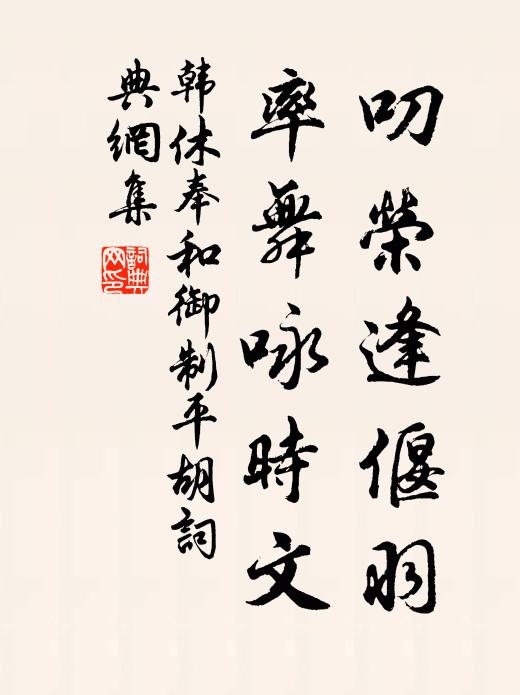 叨榮逢偃羽
率舞咏時文
韩休奉和御制平胡詞
典網集
詞典網印